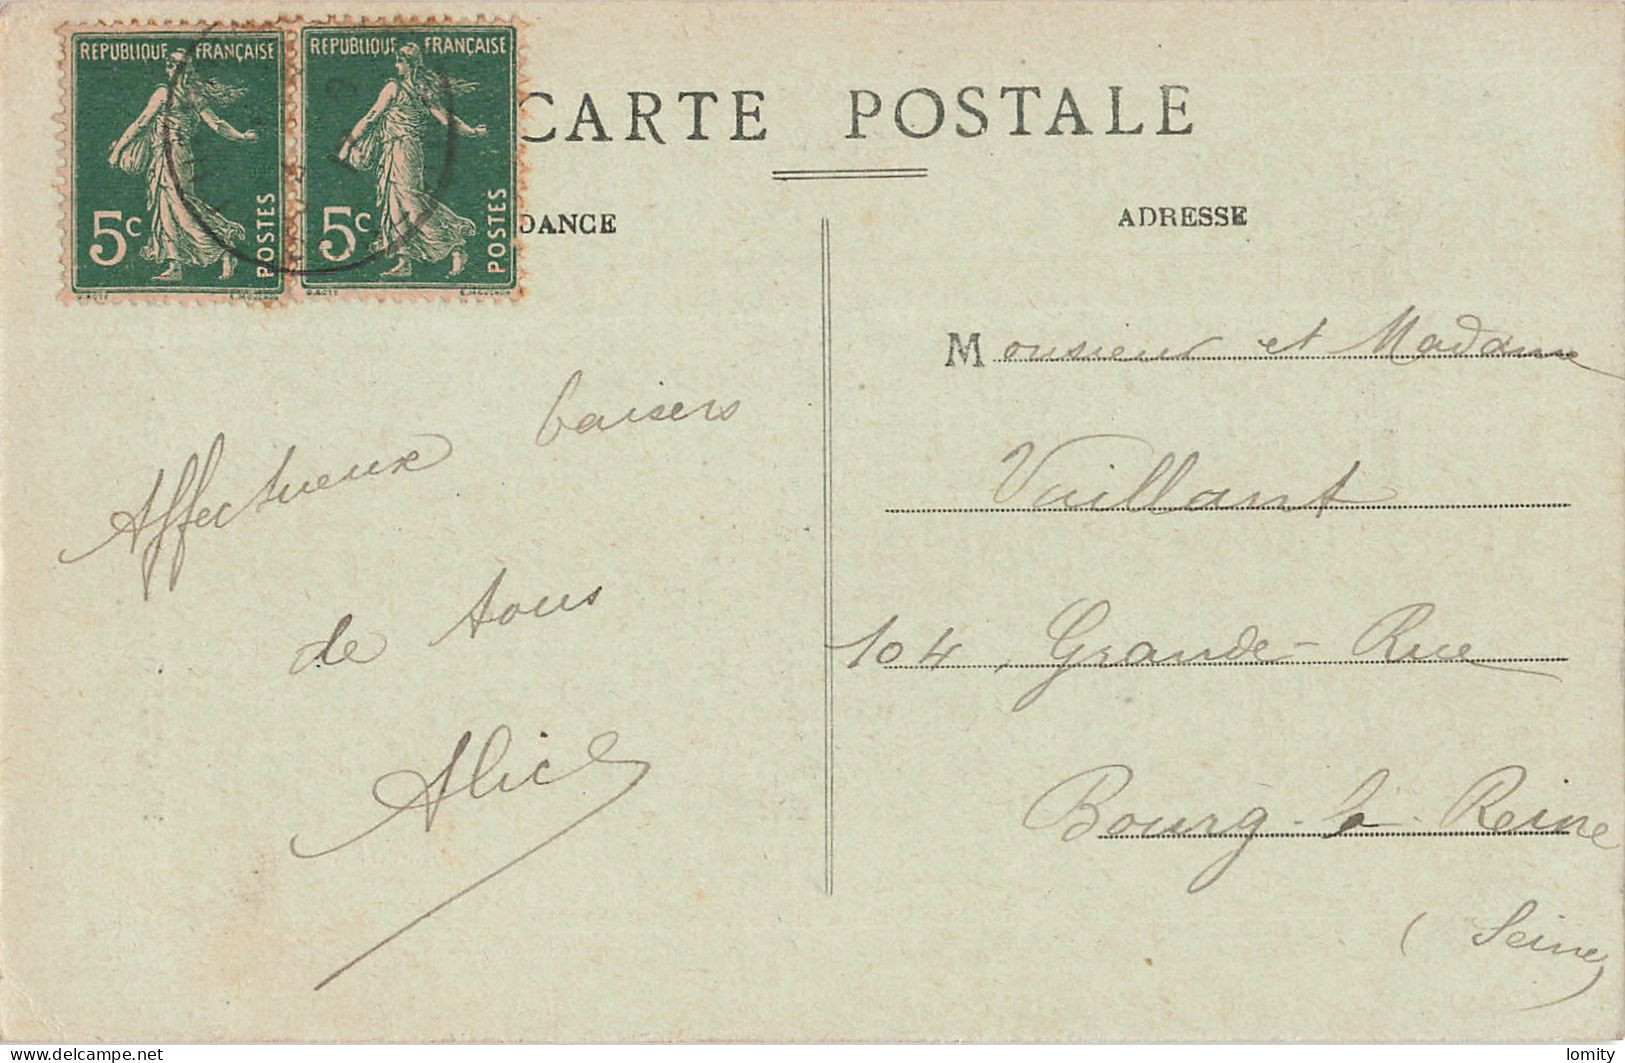 REPUBLIQUE FRANÇAISE
5c
POSTES
O.ROTY
E.MOUCHON
REPUBLIQUE FRANÇAISE
5c
POSTES
O.ROTY
E.MOUCHON
CARTE POSTALE
DANCE
ADRESSE
Affectueux baisers
de tous
Alice
Monsieur et Madame
Vaillant
104, Grande-Rue
Bourg-la-Reine
(Seine)
delcampe.net
lomity